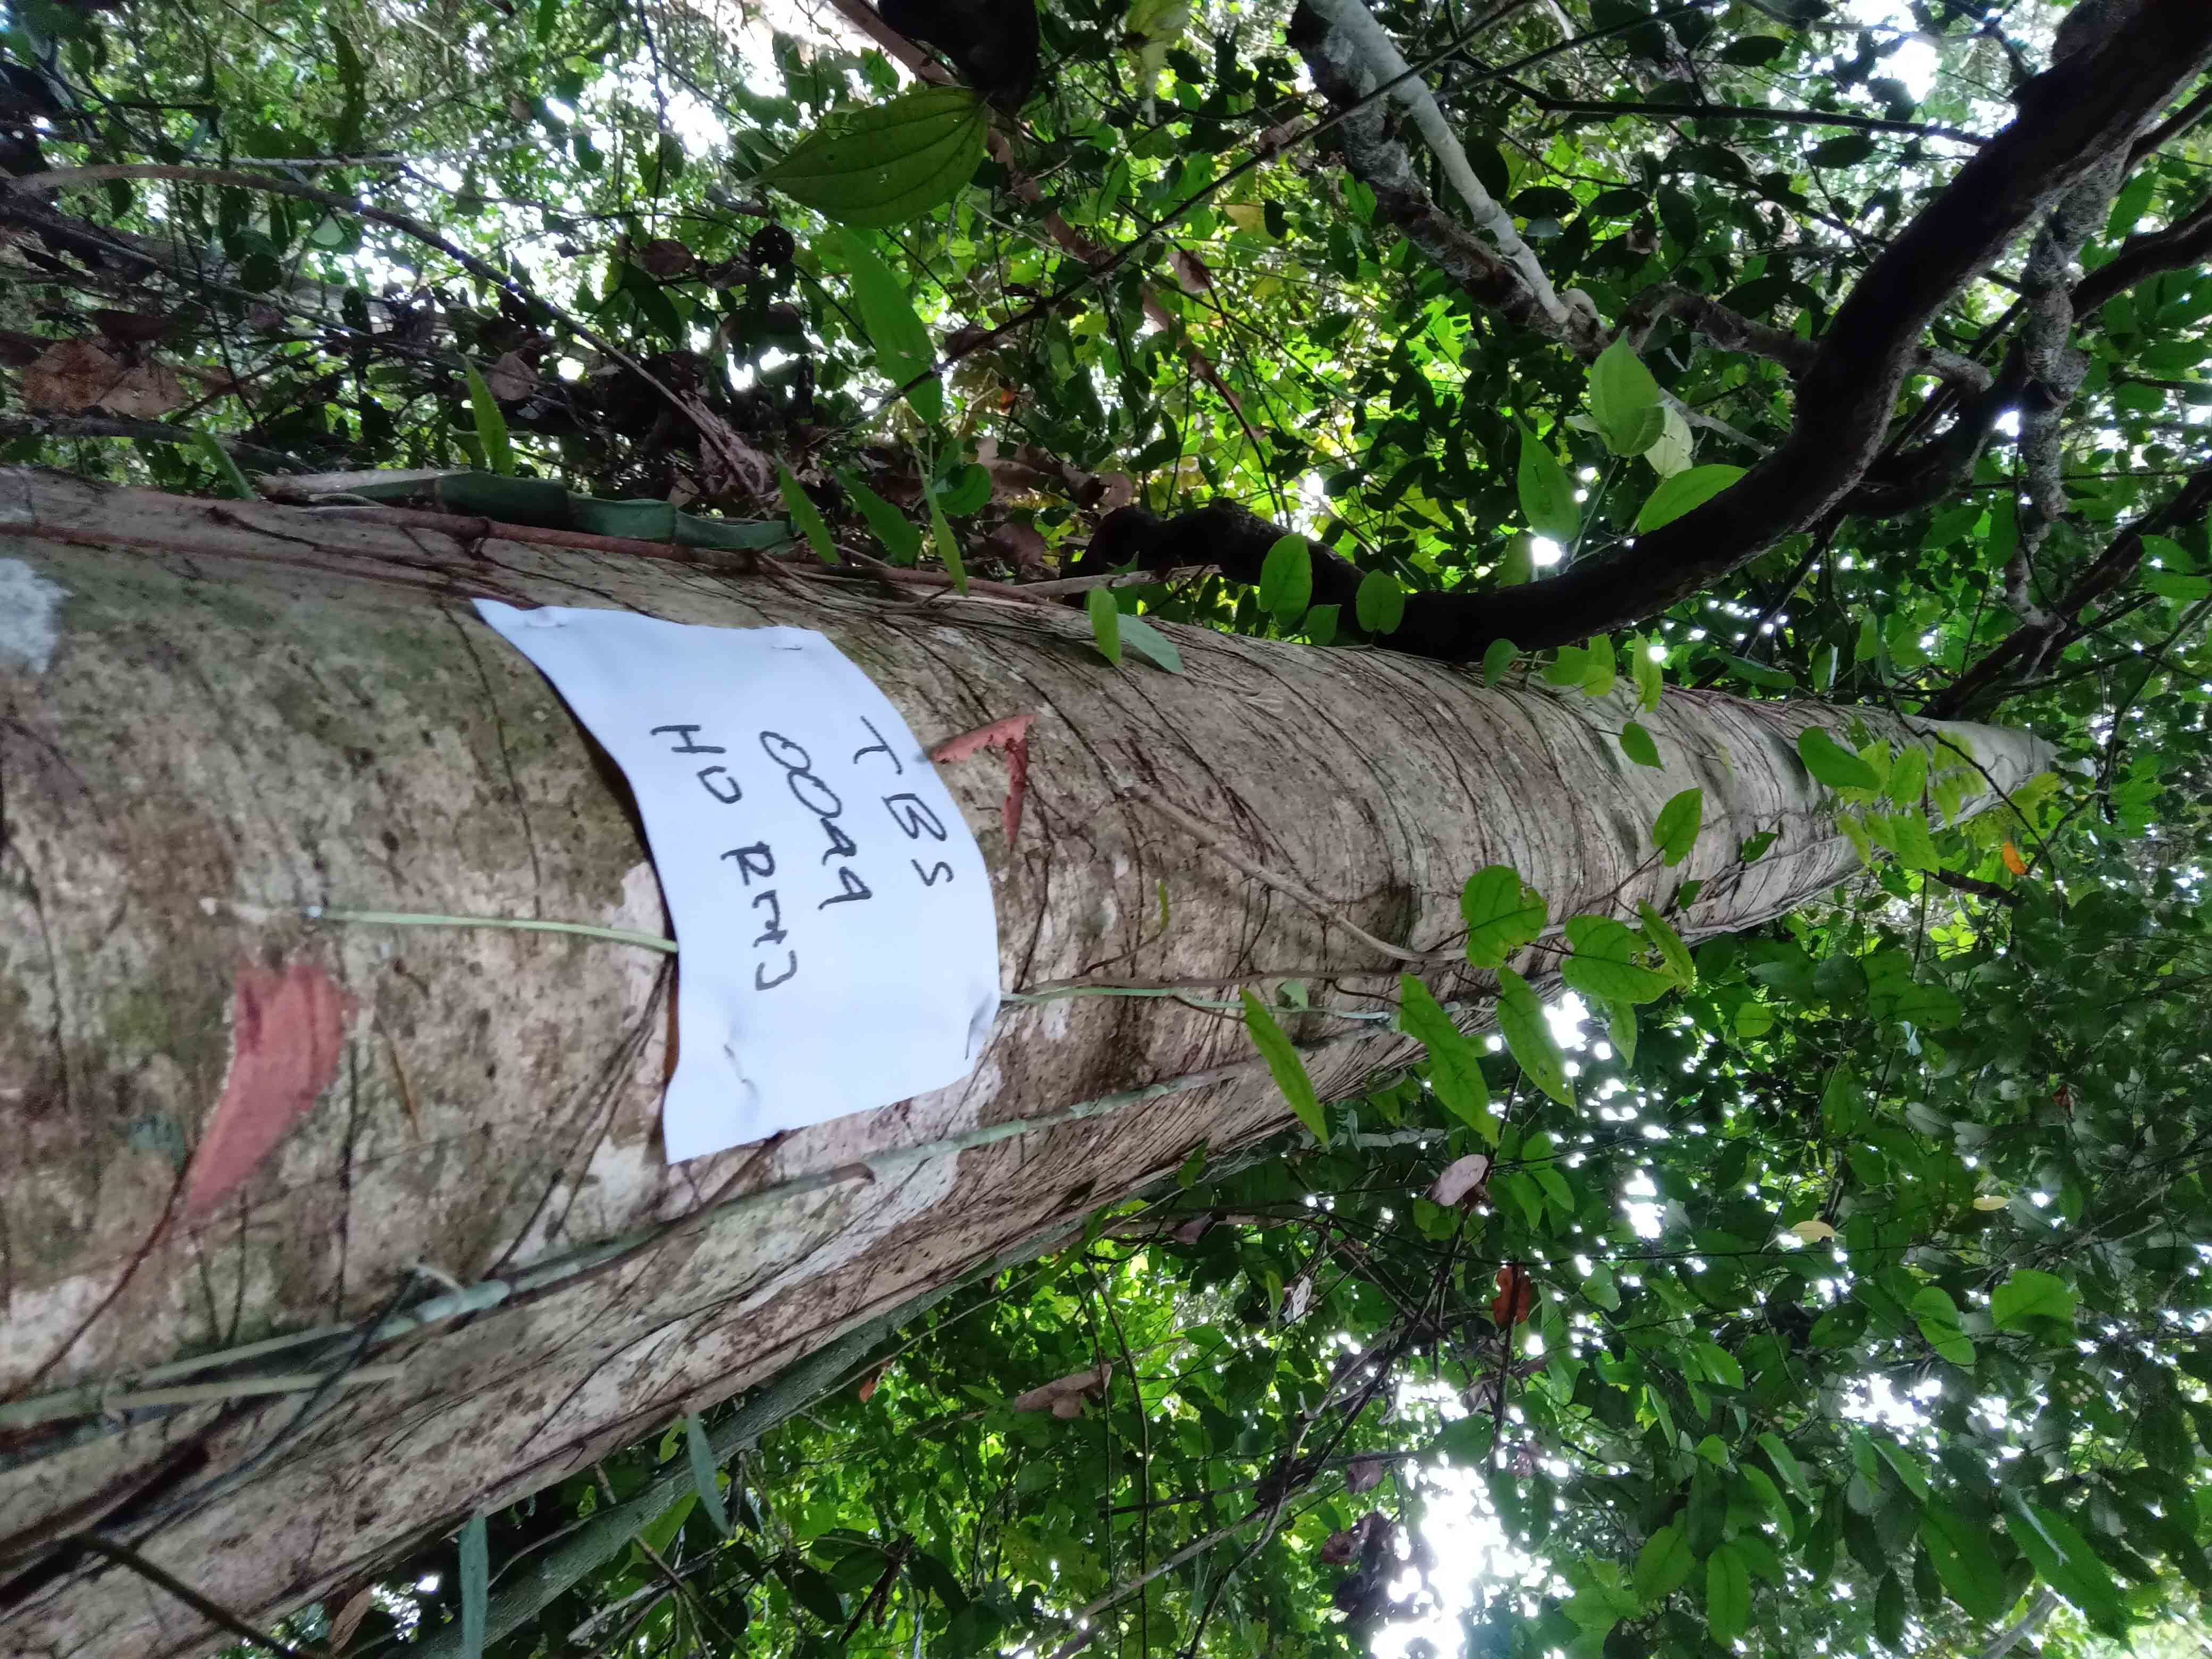 TBS
0099
HD RMJ